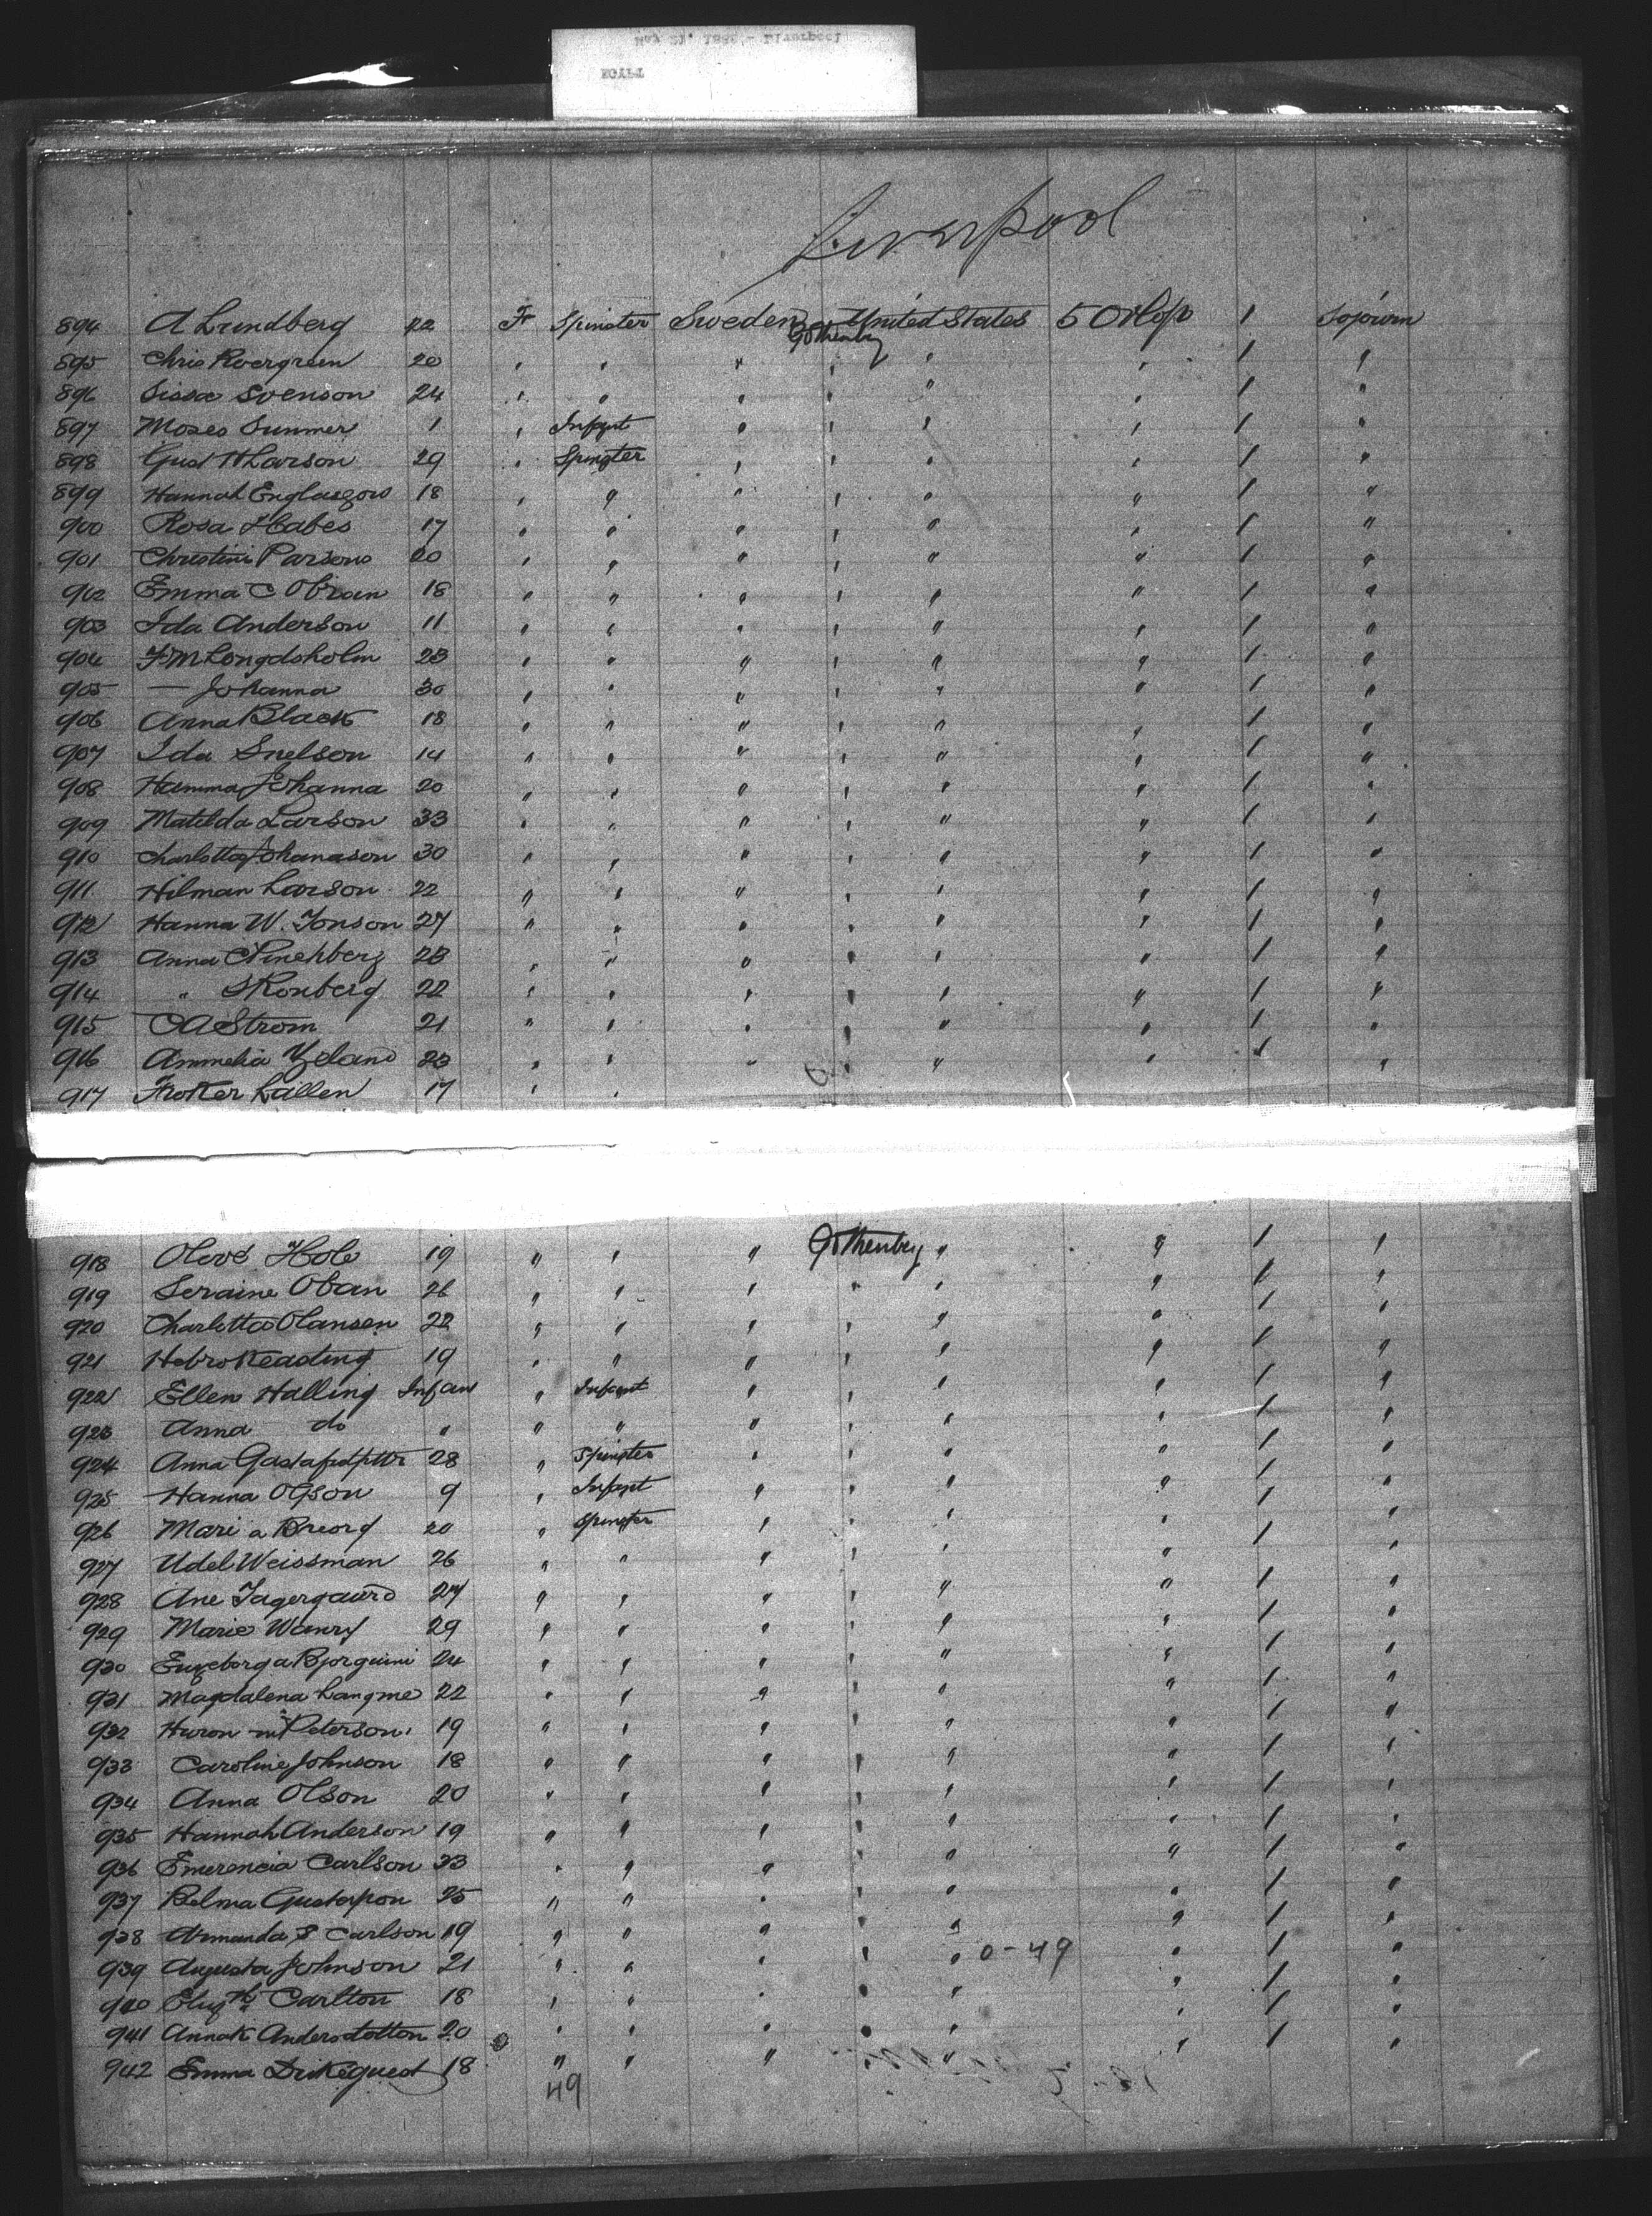 EGYPT
Liverpool
894 A Lundberg 22 F Spinster Sweden Gothenberg United States 5 Orlop 1 Sojourn
895 Chris Rvergreen 20 " " " " " " 1 "
896 Sissa Svenson 24 " " " " " " 1 "
897 Moses Sunmer 1 " Infant " " " " 1 "
898 Gust H Larson 29 " Spinster " " " " 1 "
899 Hannah Englasgow 18 " " " " " " 1 "
900 Rosa Habes 17 " " " " " " 1 "
901 Christini Parsons 20 " " " " " " 1 "
902 Emma C Obran 18 " " " " " " 1 "
903 Ida Anderson 11 " " " " " " 1 "
904 F M Longdsholm 23 " " " " " " 1 "
905 — Johanna 30 " " " " " " 1 "
906 Anna Black 18 " " " " " " 1 "
907 Ida Snelson 14 " " " " " " 1 "
908 Hamma Johanna 20 " " " " " " 1 "
909 Matilda Larson 33 " " " " " " 1 "
910 Charlotta Johanason 30 " " " " " " 1 "
911 Hilman Larson 22 " " " " " " 1 "
912 Hanna W. Jonson 27 " " " " " " 1 "
913 Anna C Pinehberg 23 " " " " " " 1 "
914 " Skonberg 22 " " " " " " 1 "
915 C A Strom 21 " " " " " " 1 "
916 Ammelia 23 " " " " " " 1 "
917 Lallen 17 " "
918 Hole 19 " " " Gothenberg " " 1 "
919 Seraine Oban 26 " " " " " " 1 "
920 Charlotta Olansen 22 " " " " " " 1 "
921 Keading 19 " " " " " " 1 "
922 Ellen Halling Infan " Infant " " " " 1 "
923 Anna do " " " " " " " 1 "
924 Anna 28 " Spinster " " " " 1 "
925 Hanna Olson 9 " Infant " " " " 1 "
926 Mari a Breorg 20 " Spinster " " " " 1 "
927 Udel Weissman 26 " " " " " " 1 "
928 Ane Jagergaurd 27 " " " " " " 1 "
929 Marie 29 " " " " " " 1 "
930 24 " " " " " " 1 "
931 Magdalena Langme 22 " " " " " " 1 "
932 Huron Peterson 19 " " " " " " 1 "
933 Caroline Johnson 18 " " " " " " 1 "
934 Anna Olson 20 " " " " " " 1 "
935 Hannah Anderson 19 " " " " " " 1 "
936 Emerencia Carlson 33 " " " " " " 1 "
937 Belma Gustafson 25 " " " " " " 1 "
938 Armanda S Carlson 19 " " " " " " 1 "
939 Augusta Johnson 21 " " " " " 0-49 " 1 "
940 Carlton 18 " " " " " " 1 "
941 Anna K Andersdotton 20 " " " " " " 1 "
942 Emma Drikequest 18 " " " " "
49